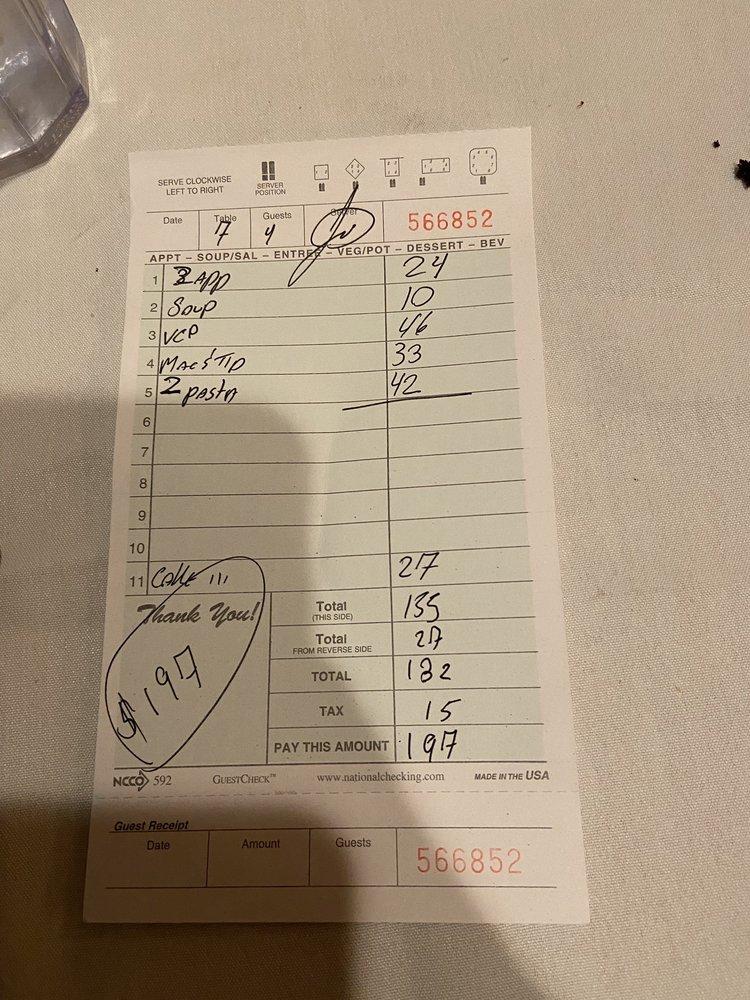 SERVE CLOCKWISE LEFT TO RIGHT
SERVER POSITION
Date Table 7 Guests 4 Server 566852
APPT – SOUP/SAL – ENTREE – VEG/POT – DESSERT – BEV
1 2 APP 24
2 SOUP 10
3 VCP 46
4 MAC & TIP 33
5 2 PASTA 42
6
7
8
9
10
11 CAKE III 27
Thank You!
$197
Total (THIS SIDE) 155
Total FROM REVERSE SIDE 27
TOTAL 182
TAX 15
PAY THIS AMOUNT 197
NCCO 592 GUESTCHECK™ www.nationalchecking.com MADE IN THE USA
Guest Receipt
Date Amount Guests 566852